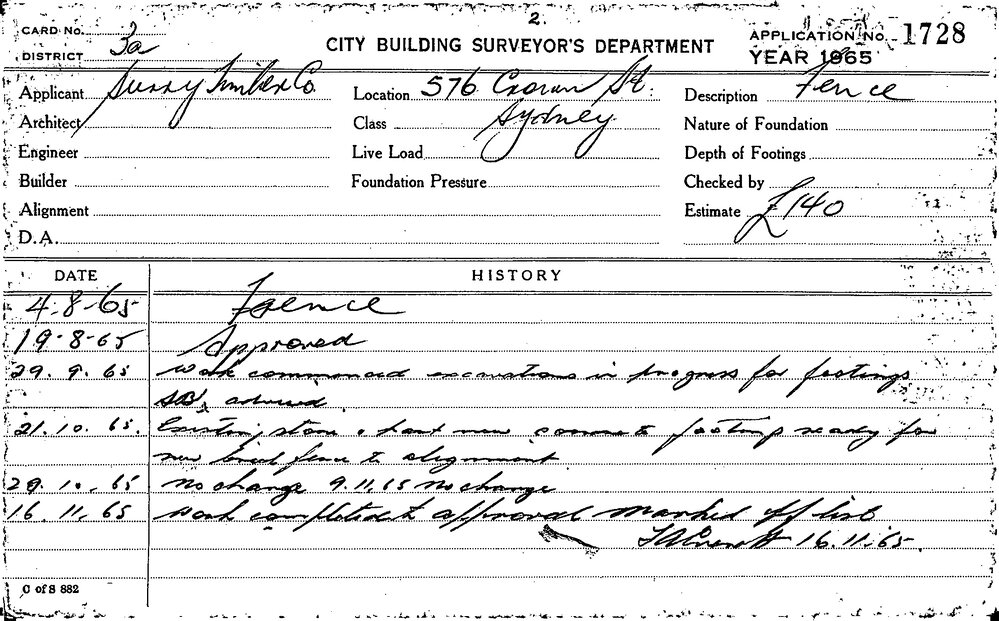 2.
CARD No.
DISTRICT 3a
CITY BUILDING SURVEYOR'S DEPARTMENT
APPLICATION No. 1728
YEAR 1965
Applicant Surry Timber Co
Location 576 Crown St.
Description Fence
Architect
Class Sydney
Nature of Foundation
Engineer
Live Load
Depth of Footings
Builder
Foundation Pressure
Checked by
Alignment
Estimate £140
D.A.
DATE
HISTORY
4.8.65 Fence
19.8.65 Approved
29.9.65 Work commenced excavations in progress for footings
advised
21.10.65. Existing stone new concrete footing ready for
new brick fence to alignment
29.10.65 No change 9.11.65 No change
16.11.65 Work completed to approval marked off list
16.11.65.
C of S 882